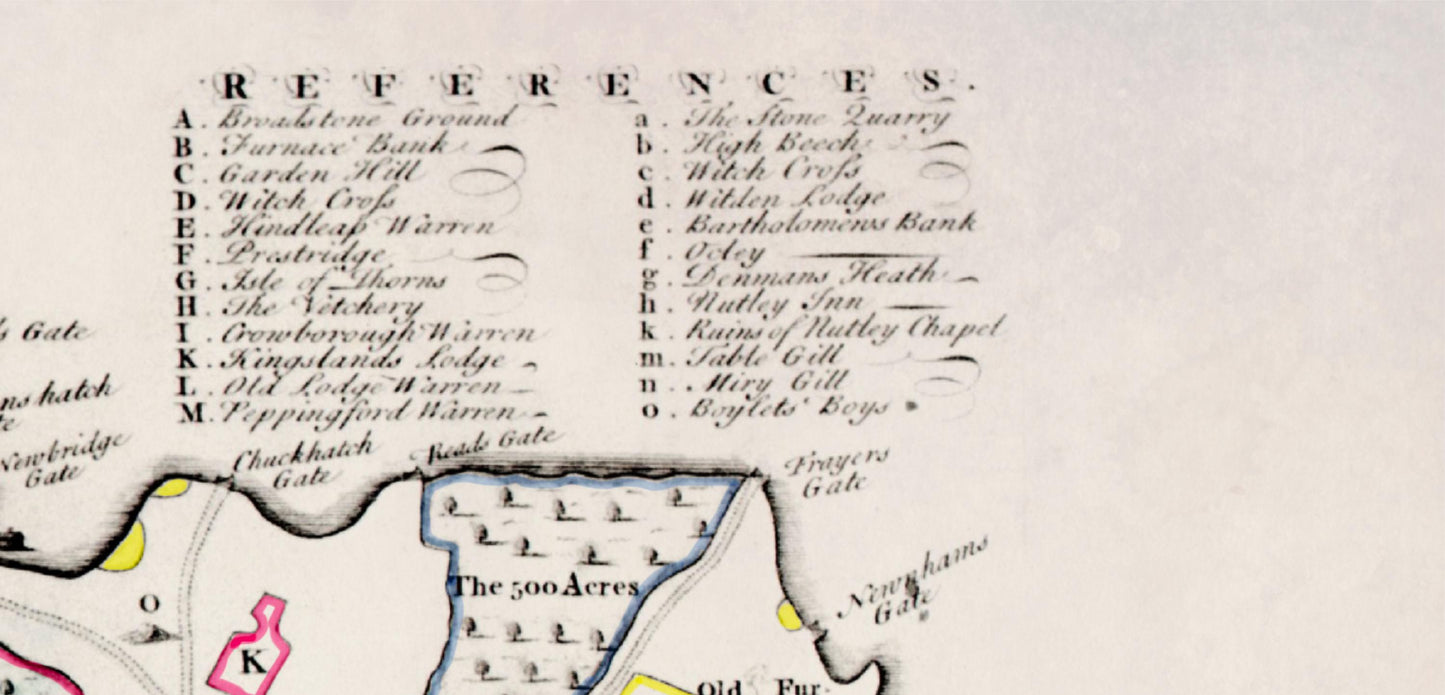 REFERENCES.
A. Broadstone Ground
B. Furnace Bank
C. Garden Hill
D. Witch Croſs
E. Hindleap Warren
F. Prestridge
G. Isle of Thorns
H. The Vetchery
I. Crowborough Warren
K. Kingslands Lodge
L. Old Lodge Warren
M. Peppingford Warren
a. The Stone Quarry
b. High Beech
c. Witch Croſs
d. Witden Lodge
e. Bartholomews Bank
f. Ocley
g. Denmans Heath
h. Nutley Inn
k. Ruins of Nutley Chapel
m. Table Gill
n. Miry Gill
o. Boylets' Boys
s Gate
ns hatch
te
Newbridge
Gate
Chuckhatch
Gate
Reads Gate
Frayers
Gate
Newnhams
Gate
The 500 Acres
O
K
Old Fur-